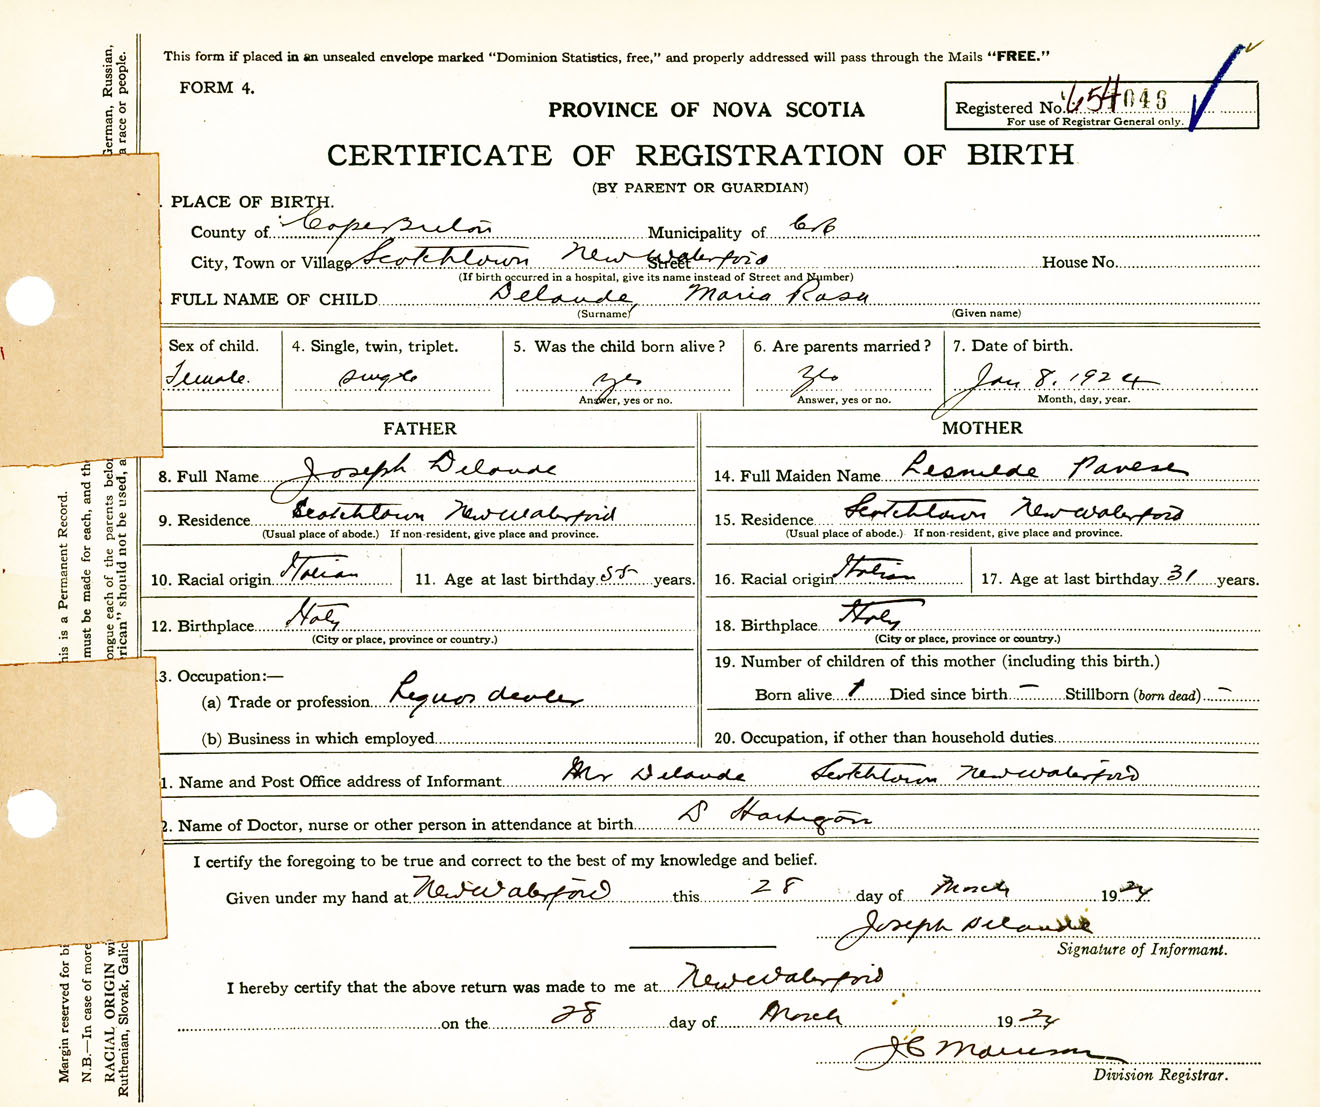 This form if placed in an unsealed envelope marked "Dominion Statistics, free," and properly addressed will pass through the Mails "FREE."
FORM 4.
PROVINCE OF NOVA SCOTIA
Registered No. 654 046
For use of Registrar General only.
CERTIFICATE OF REGISTRATION OF BIRTH
(BY PARENT OR GUARDIAN)
. PLACE OF BIRTH.
County of Cape Breton Municipality of CB
City, Town or Village Scotchtown New Waterford Street House No.
(If birth occurred in a hospital, give its name instead of Street and Number)
FULL NAME OF CHILD Delaude, Maria Rosa
(Surname) (Given name)
Sex of child. 4. Single, twin, triplet. 5. Was the child born alive? 6. Are parents married? 7. Date of birth.
Female. single yes yes Jan 8. 1924
Answer, yes or no. Answer, yes or no. Month, day, year.
FATHER MOTHER
8. Full Name Joseph Delaude 14. Full Maiden Name Pavese
9. Residence Scotchtown New Waterford 15. Residence Scotchtown New Waterford
(Usual place of abode.) If non-resident, give place and province. (Usual place of abode.) If non-resident, give place and province.
10. Racial origin Italian 11. Age at last birthday years. 16. Racial origin Italian 17. Age at last birthday 31 years.
12. Birthplace Italy 18. Birthplace Italy
(City or place, province or country.) (City or place, province or country.)
3. Occupation:— 19. Number of children of this mother (including this birth.)
(a) Trade or profession Liquor dealer Born alive 1 Died since birth — Stillborn (born dead) —
(b) Business in which employed 20. Occupation, if other than household duties
1. Name and Post Office address of Informant Mr Delaude Scotchtown New Waterford
2. Name of Doctor, nurse or other person in attendance at birth D Hartigan
I certify the foregoing to be true and correct to the best of my knowledge and belief.
Given under my hand at New Waterford this 28 day of March 1924
Joseph Delaude
Signature of Informant.
I hereby certify that the above return was made to me at New Waterford
on the 28 day of March 1924
J C Morrison
Division Registrar.
Margin reserved for bi his is a Permanent Record.
N.B.—In case of more must be made for each, and the
RACIAL ORIGIN wi ongue each of the parents belon German, Russian,
Ruthenian, Slovak, Galic rican" should not be used, a a race or people.